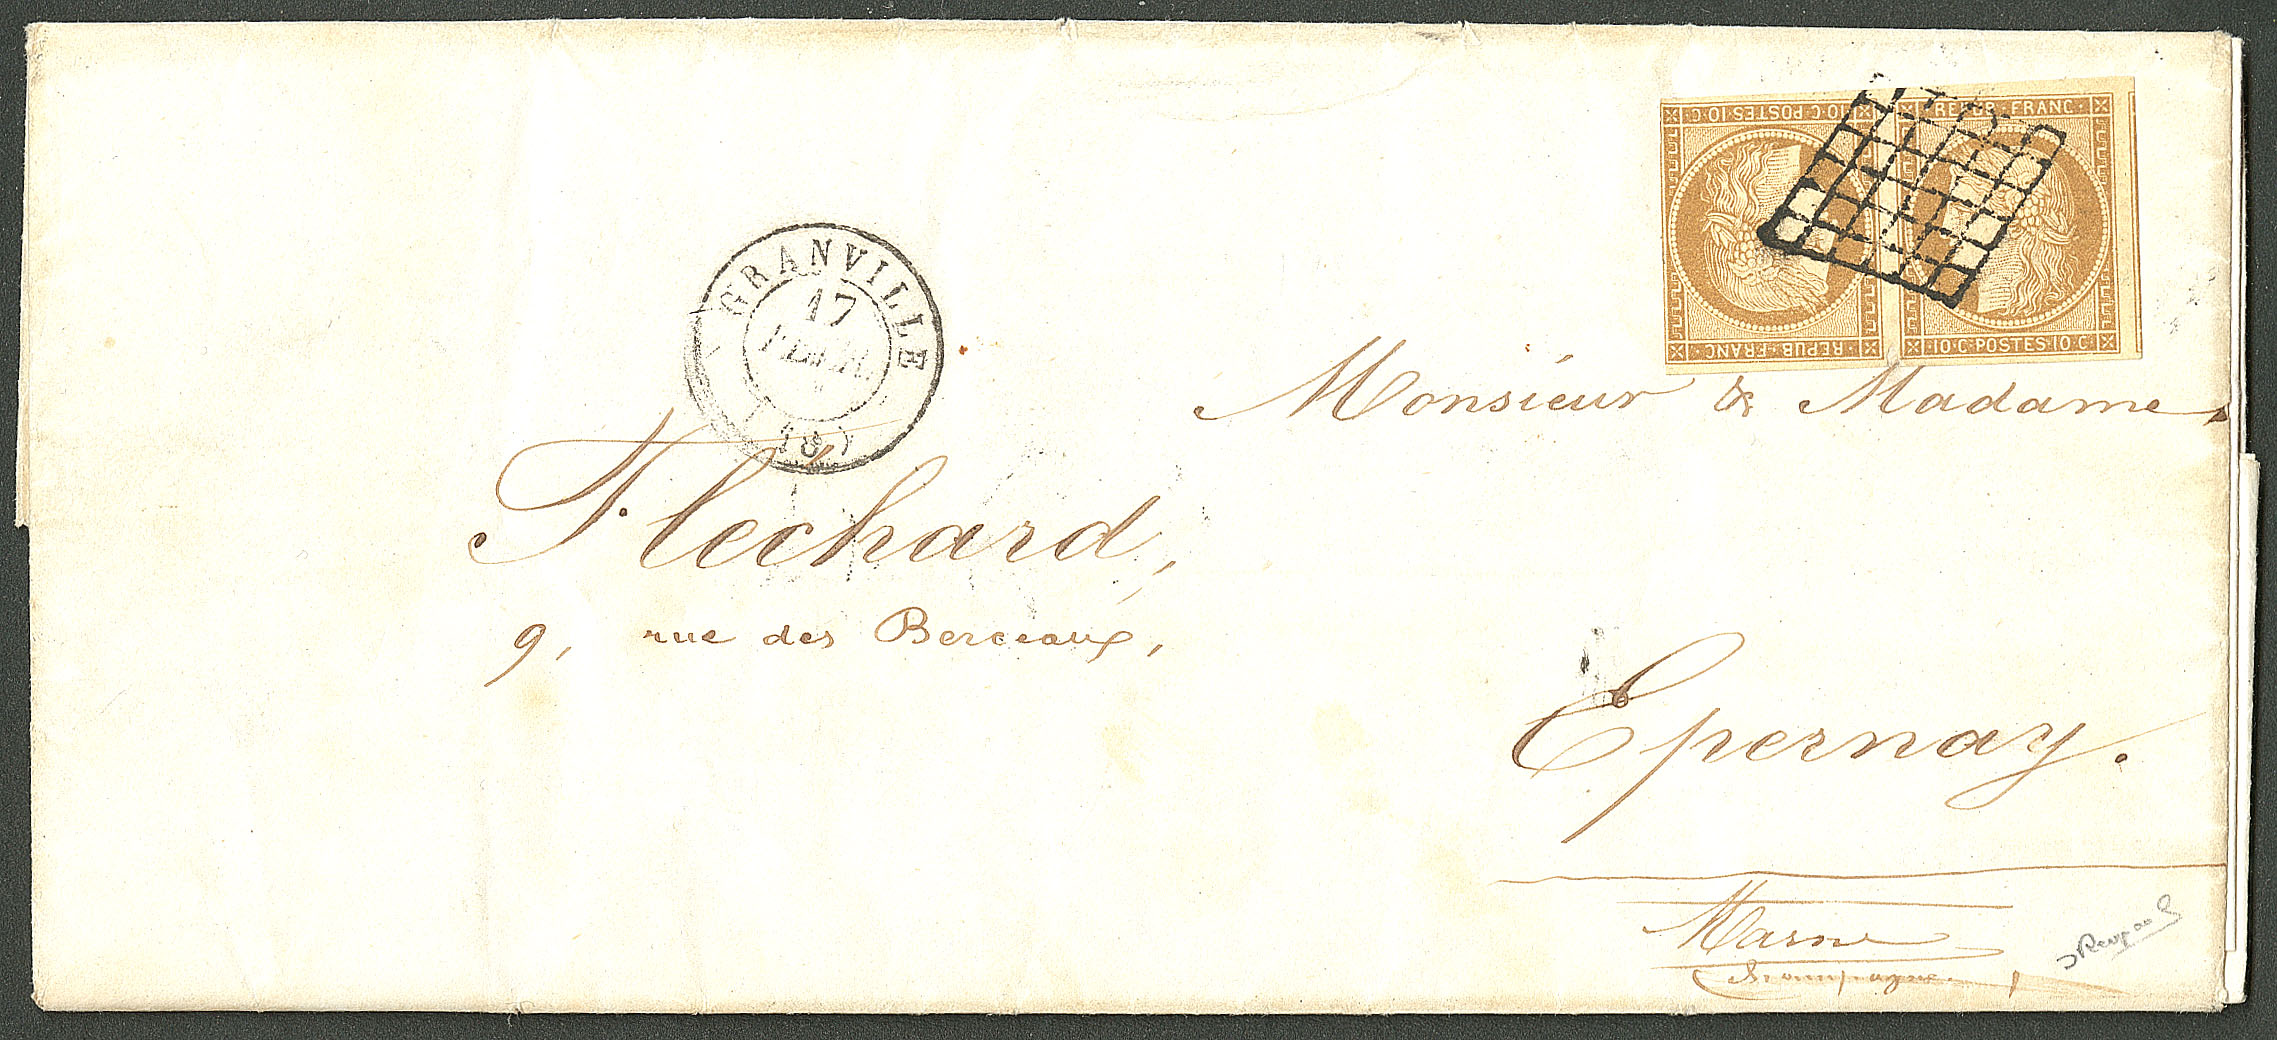 10·C·POSTES·10·C
REPUB·FRANC
REPUB·FRANC·
10·C·POSTES·10·C
GRANVILLE
17
FEVR.
Monsieur & Madame
Flechard,
9, rue des Berceaux,
Epernay.
Marne
Champagne.